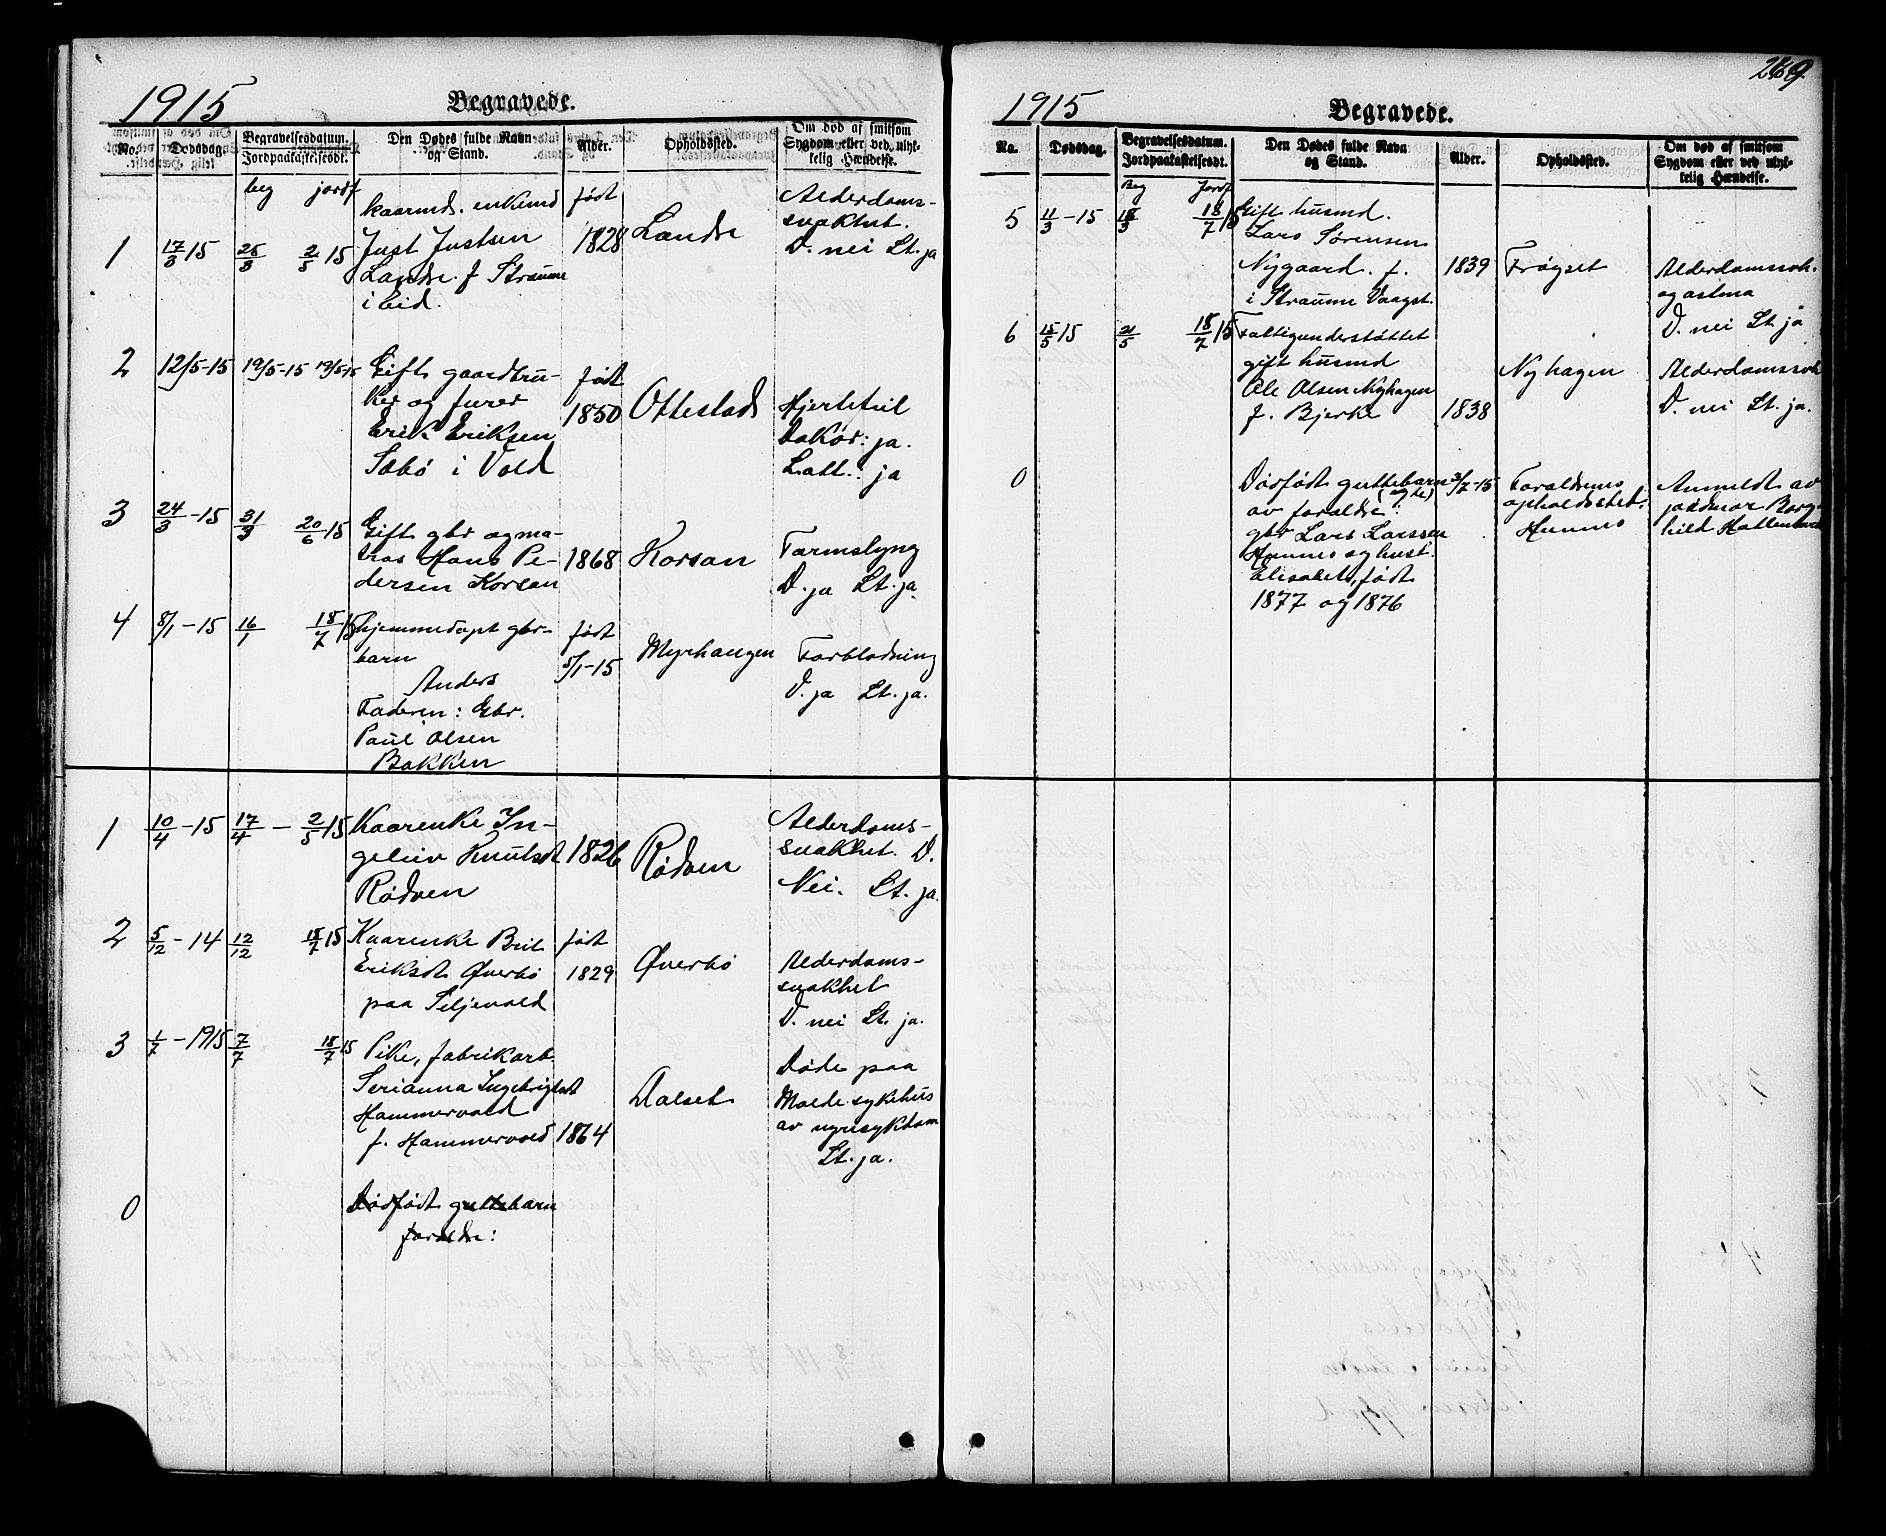 1915
Begravede.
No.
Dødsdag.
Begravelsesdatum.
Jordpaakastelsesdt.
Den Dødes fulde Navn
og Stand.
Alder.
Opholdssted.
Om død af smitsom
Sygdom eller ved ulyk-
kelig Hændelse.
beg jordf
1
17/3 15
25/3
2/5 15
kaarmd. enkemd
Just Justsen
Landre. f Straume
i Eid.
født
1828
Landre
Alderdoms-
svakhet.
D. nei Lt. ja
2
12/5-15
19/5-15
19/5-15
Gift gaardbru-
ker og furer
Erik Eriksen
Sæbö i Vold
født
1850
Ottestad
Hjertefeil
Doktor: ja.
Latt.: ja
3
24/3-15
31/3
20/6 15
Gift gbr og ma-
tros Hans Pe-
dersen Korsan
1868
Korsan
Tarmslyng
D. ja Lt. ja
4
8/1-15
16/1
18/7 15
hjemmedøpt gbr-
barn
Anders
Faderen: Gbr.
Paul Olsen
Bakken
født
5/1-15
Myrhaugen
Forblødning
D. ja Lt. ja.
1
10/4-15
17/4 -
2/5 15
Kaarenke In-
geleiv Knutsdt
Rödven
1826
Rödven
Alderdoms-
svakhet. D.
Nei. Lt. ja.
2
5/12-14
12/12
18/7 15
Kaarenke Brit
Eriksdt Øverbö
paa Seljevold
født
1829
Øverbö
Alderdoms-
svakhet
D. nei Lt. ja.
3
1/7-1915
7/7
18/7 15
Pike, fabrikarb.
Serianna Ingebrigtsdt
Hammervold
f. Hammervold
1864
Dalset
Døde paa
Molde sykehus
av nyresykdom
Lt. ja.
0
Dødfødt guttebarn
foraldre:
269
1915
Begravede.
No.
Dødsdag.
Begravelsesdatum.
Jordpaakastelsesdt.
Den Dødes fulde Navn
og Stand.
Alder.
Opholdssted.
Om død af smitsom
Sygdom eller ved ulyk-
kelig Hændelse.
Beg Jordf
5
11/3-15
18/3
18/7 15
Gift husmd.
Lars Sørensen
Nygaard. f.
i Straume Vaagst.
1839
Frøgset
Alderdomssvh.
og astma
D. nei Lt. ja
6
15/5 15
21/5
18/7 15
Fattigunderstøttet
gift husmd
Ole Olsen Nyhagen
f. Bjerke
1838
Nyhagen
Alderdomssvh
D. nei Lt. ja.
0
Dødfødt guttebarn
(ægte)
av foraldre:
gbr Lars Larssen
Hunnes og hust.
Elisabet, født
1877 og 1876
3/7-15
Foraldrenes
opholdssted:
Hunnes
Anmeldt av
jordmor Borg-
hild Hattemo